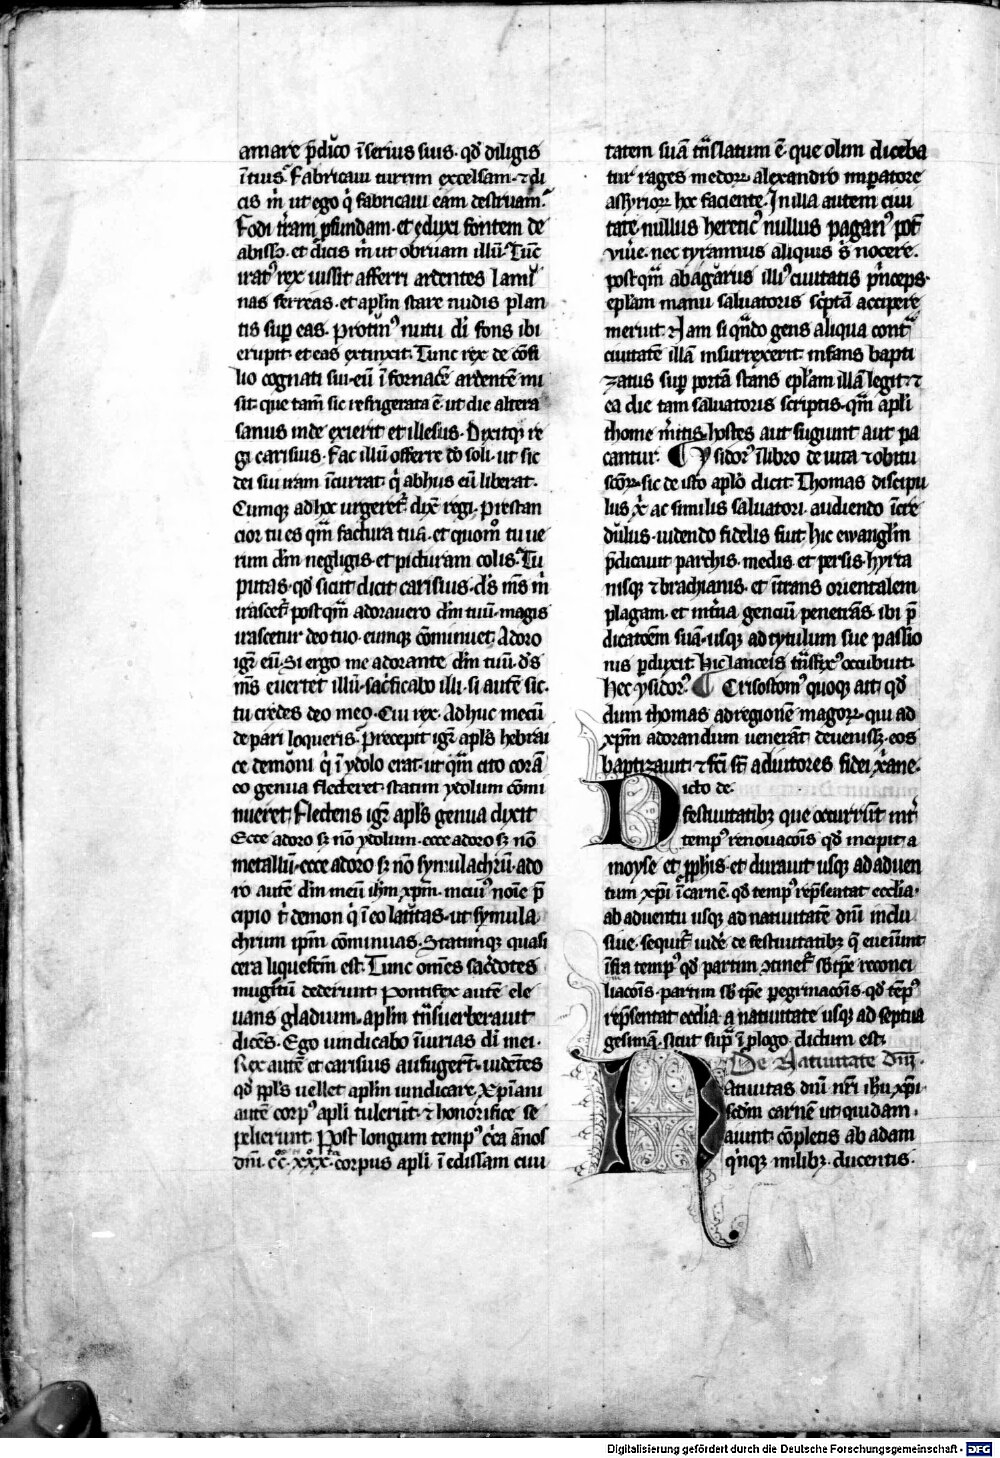 amare p̄dico ī seruis suis· qđ diligis
ītius· Fabricaui turrim excelsam· ⁊ di
cis m̄ ut ego q̄ fabricaui eam destruam·
Fodi t̄ram p̄fundam· et eduxi fontem de
abisso· et dicis m̄ ut obruam illū· Tūc
irat⁹ rex iussit afferri ardentes lami
nas ferreas· et aplm̄ stare nudis plan
tis sup̱ eas· Protin⁹ nutu dī fons ibi
erupit· et eas extinxit· Tunc rex de cōsi
lio cognati sui· eū ī fornacē ardentē mi
sit· que tam̄ sic refrigerata ē· ut die altera
sanus inde exierit et illesus· Dixitq̷ re
gi carisius· Fac illū offerre dō soli· ut sic
dei sui iram īcurrat· q̄ ab hus eū liberat·
Cumq̷ ad hoc urgeret᷑ dix̄ regi· Prestan
cior tu es q̄m factura tua· et quom̄o tu ue
rum dm̄ negligis· et picturam colis· Tu
putas· qđ sicut dicit carisius· d̄s m̄s m̄
irascet᷑ postq̄m adorauero dm̄ tuū· magis
irascetur deo tuo· eumq̷ cōminuet· Adoro
igr̄ eū· Si ergo me adorante dm̄ tuū· d̄s
m̄s euertet illū· sac̄ficabo illi· si autē sic·
tu credes deo meo· Cui rex· Adhuc mecū
de pari loqueris· Precepit igr̄ apl̄s hebrai
ce demōni q̄ ī ydolo erat· ut q̄m cito corā
eo genua flecteret· statim ydolum cōmi
nueret· Flectens igr̄ apl̄s genua dixit
Ecce adoro sz nō ydolum· ecce adoro sz nō
metallū· ecce adoro sz nō symulachrū· ado
ro autē dm̄ meū ihm̄ xpm̄· in cui⁹ noīe p̄
cipio t̄ demon q̄ ī eo latitas· ut symula
chrum ip̄m cōminuas· Statimq̷ quasi
cera liquefcm̄ est· Tunc om̄es sac̄dotes
mugitū dederunt· Pontifex autē ele
uans gladium· aplm̄ trāsuerberauit
dicēs· Ego uindicabo īiurias dī mei·
Rex autē et carisius aufugerūt· uidētes
qđ pp̄ls uellet aplm̄ uindicare· Xpīani
autē corp⁹ apl̄i tulerūt· ⁊ honorifice se
pelierunt· Post longum temp⁹ c̄ca ānos
dn̄i· cc·xxx· corpus apl̄i ī edissam ciui
tatem suā trāslatum ē· que olim diceba
tur rages medoꝝ· alexandro imp̱atore
assyrioꝝ hoc faciente· In illa autem ciui
tate· nullus heretic⁹ nullus pagan⁹ pōt
viuē· nec tyrannus aliquis s̄ nocere·
postq̄m abagarus illi⁹ ciuitatis p̄nceps·
eplam manu saluatoris sc̄ptā accipere
meruit· Nam si qn̄do gens aliqua cont̄
ciuitatē illā insurrexerit· infans bapti
zatus sup̱ portā stans epl̄am illā legit· ⁊
ea die tam saluatoris scriptis· q̄m apl̄i
thome m̄itis· hostes aut fugiunt aut pa
cantur· ¶ Ysidor⁹ ī libro de uita ⁊ obitu
scōꝝ· sic de isto apl̄o dicit· Thomas discipu
lus x̄ ac similis saluatori· audiendo īcre
dulus· uidendo fidelis fuit· hic ewanglm̄
p̄dicauit parthis· medis et persis· hyrta
nisq̷ ⁊ brachianis· et ītrans orientalem
plagam· et int̄ia genciū penetrās· ibi p̄
dicatōem suā· usq̷ ad tytulum sue passio
nis p̱duxit· hic lanceis trāsfix⁹ occubuit·
Hec ysidor⁹· ¶ Crisostom⁹ quoq̷ ait· qđ
dum thomas ad regionē magoꝝ· qui ad
xpm̄ adorandum venerāt· deuenissz· eos
baptizauit· ⁊ fc̄i st̄ adiutores fidei x̄ane·
Dicto de
festiuitatibz que occurrūt int̄
temp⁹ renouacōis qđ incipit a
moyse et pp̄his· et durauit usq̷ ad aduen
tum xp̄i ī carnē· qđ temp⁹ rep̄sentat ecclīa·
ab aduentu usq̷ ad natiuitatē dn̄i inclu
siue· sequit᷑ uidē de festiuitatibz q̄ eueniunt
īfra temp⁹ qđ partim ɔtinet᷑ sb̄ tp̄e reconci
liacōis· partim sb̄ tp̄e p̱egrinacōis· qđ temp⁹
rep̄sentat ecclīa· a natiuitate usq̷ ad septua
gesimā· sicut sup̄ ī plogo dictum est·
De Natiuitate dn̄i·
Natiuitas dn̄i nr̄i ihū xp̄i·
scdm̄ carnē ut quidam·
aiunt· cōpletis ab adam
q̄nq̷ milibz· ducentis·
Digitalisierung gefördert durch die Deutsche Forschungsgemeinschaft - DFG